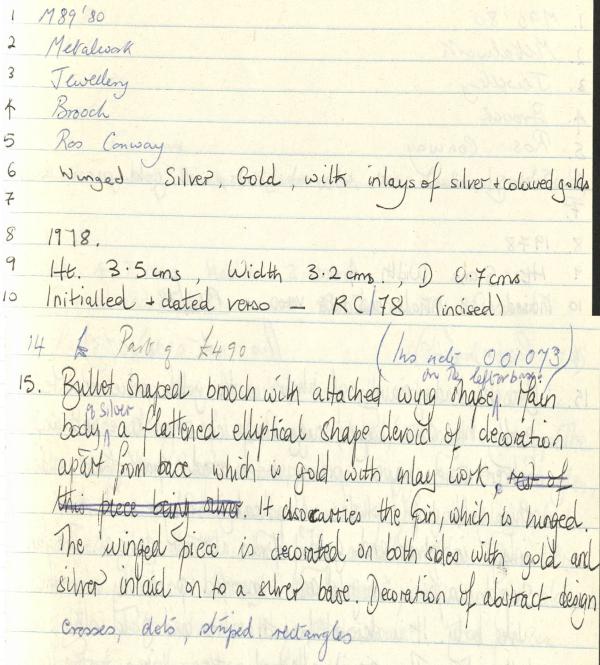 1 M89'80
2 Metalwork
3 Jewellery
4 Brooch
5 Ros Conway
6 Winged Silver, Gold, with inlays of silver + coloured golds
7
8 1978.
9 Ht. 3.5cms, Width 3.2cms., D 0.7cms
10 Initialled + dated verso — RC/78 (incised)
14 £ Part of £490 (Ins not 001073)
on the left or base?
15. Bullet shaped brooch with attached wing shape. Plain
is silver
body, a flattened elliptical shape devoid of decoration
apart from base which is gold with inlay work, rest of
this piece being silver. It also carries the pin, which is hinged.
The winged piece is decorated on both sides with gold and
silver inlaid on to a silver base. Decoration of abstract design
crosses, dots, striped rectangles